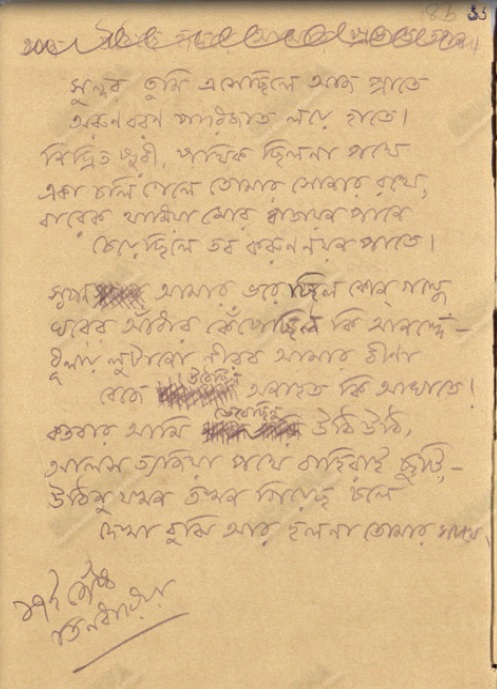 সুন্দর তুমি এসেছিলে আজ প্রাতে
অরুণবরণ পারিজাত লয়ে হাতে।
নিদ্রিত পুরী, পথিক ছিলনা পথে
একা চলি গেলে তোমার সোনার রথে,
বারেক থামিয়া মোর বাতায়ন পানে
চেয়েছিলে তব করুণ নয়ন পাতে।
স্বপন আমার ভরেছিল কোন্ গন্ধে
ঘরের আঁধার কেঁপেছিল কি আনন্দে –
ধূলায় লুটানো নীরব আমার বীণা
বেজে উঠেছিল অনাহত কি আঘাতে!
কতবার আমি ভেবেছিনু উঠি উঠি,
আলস ত্যজিয়া পথে বাহিরাই ছুটি, –
উঠিনু যখন তখন গিয়েছ চলে
দেখা বুঝি আর হলনা তোমার সাথে।
১৭ই জ্যৈষ্ঠ
তিনধরিয়া